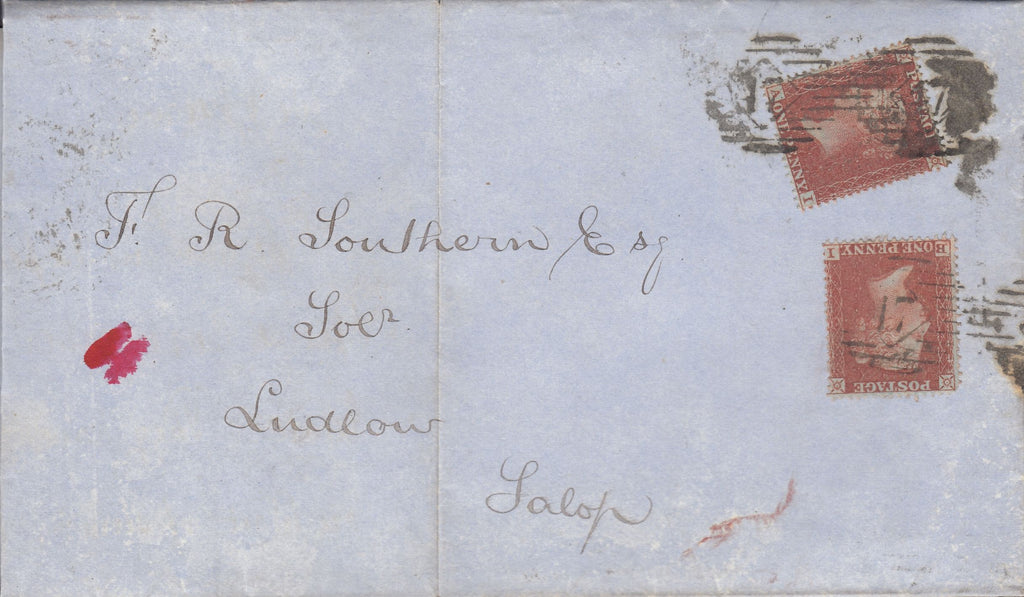 F. R. Southern Esq
Solr
Ludlow
Salop
POSTAGE
ONE PENNY
B I
POSTAGE
ONE PENNY
I